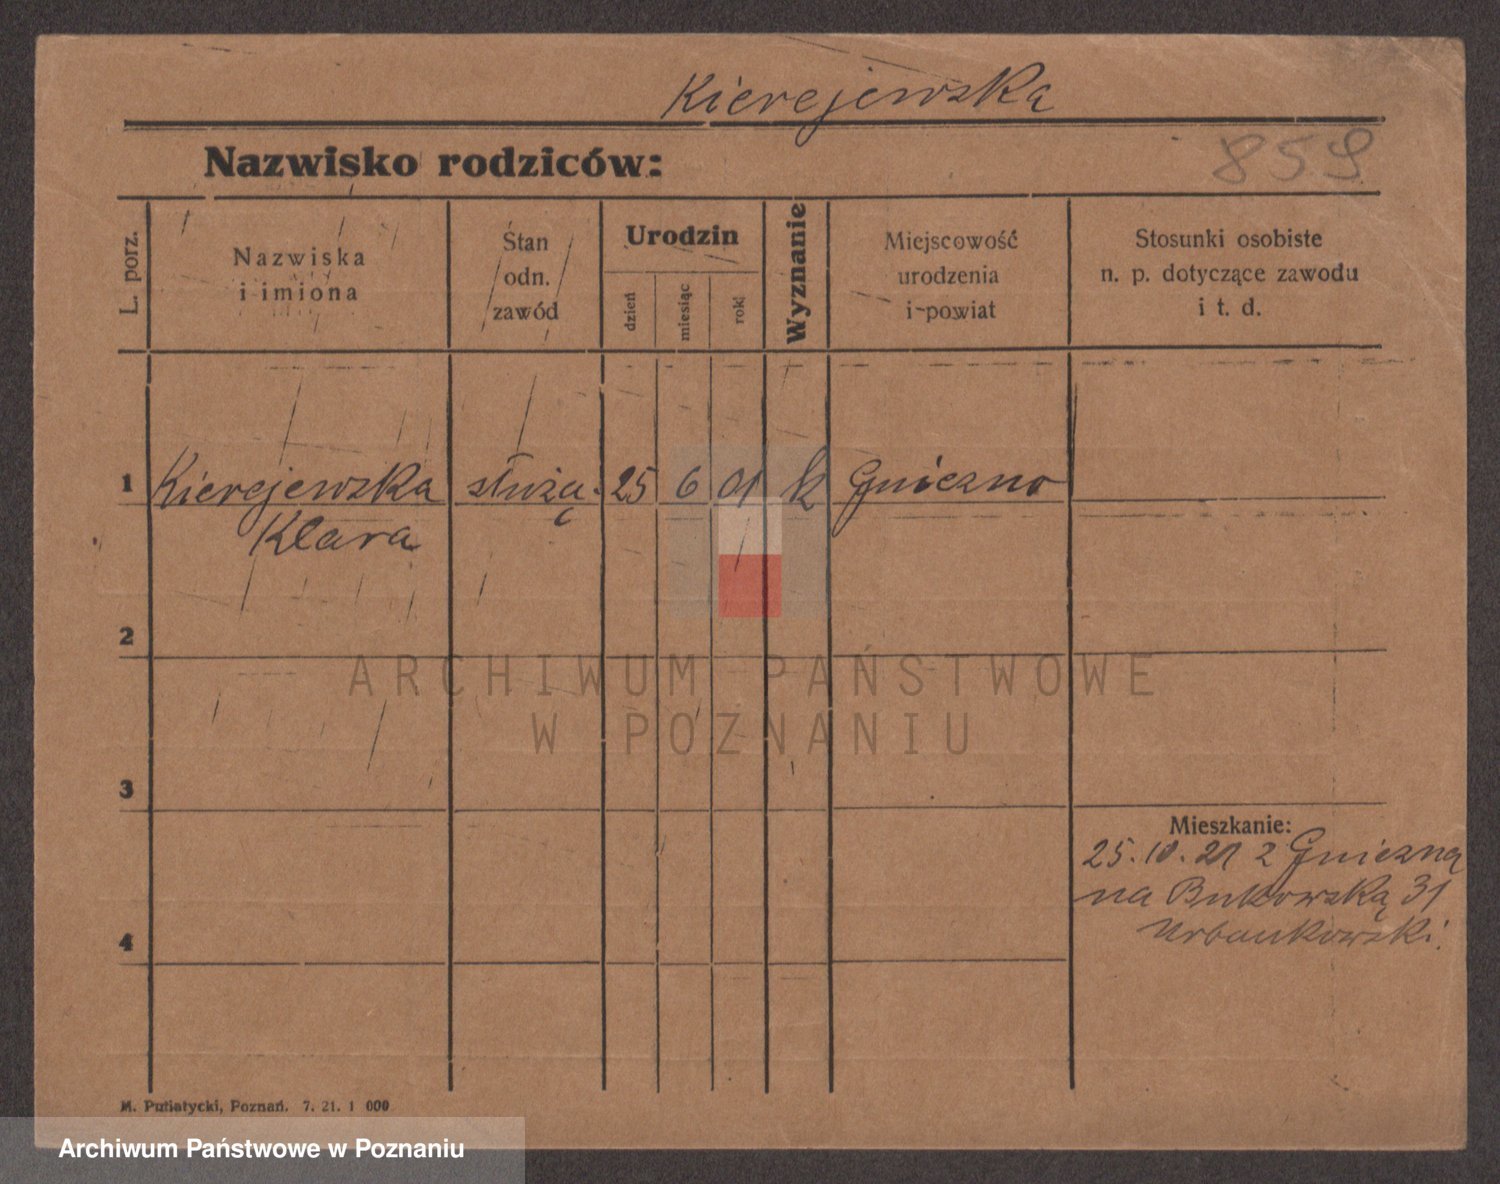 Kierejewska
859
Nazwisko rodziców:
L. porz.
Nazwiska
i imiona
Stan
odn.
zawód
Urodzin
dzień
miesiąc
rok
Wyznanie
Miejscowość
urodzenia
i powiat
Stosunki osobiste
n. p. dotyczące zawodu
i t. d.
1 Kierejewska służą. 25 6 01 k Gniezno
Klara
2
ARCHIWUM PAŃSTWOWE
W POZNANIU
3
Mieszkanie:
25.10.21 z Gniezna
na Bukowską 31
Urbankowski.
4
M. Putiatycki, Poznań. 7. 21. 1 000
Archiwum Państwowe w Poznaniu